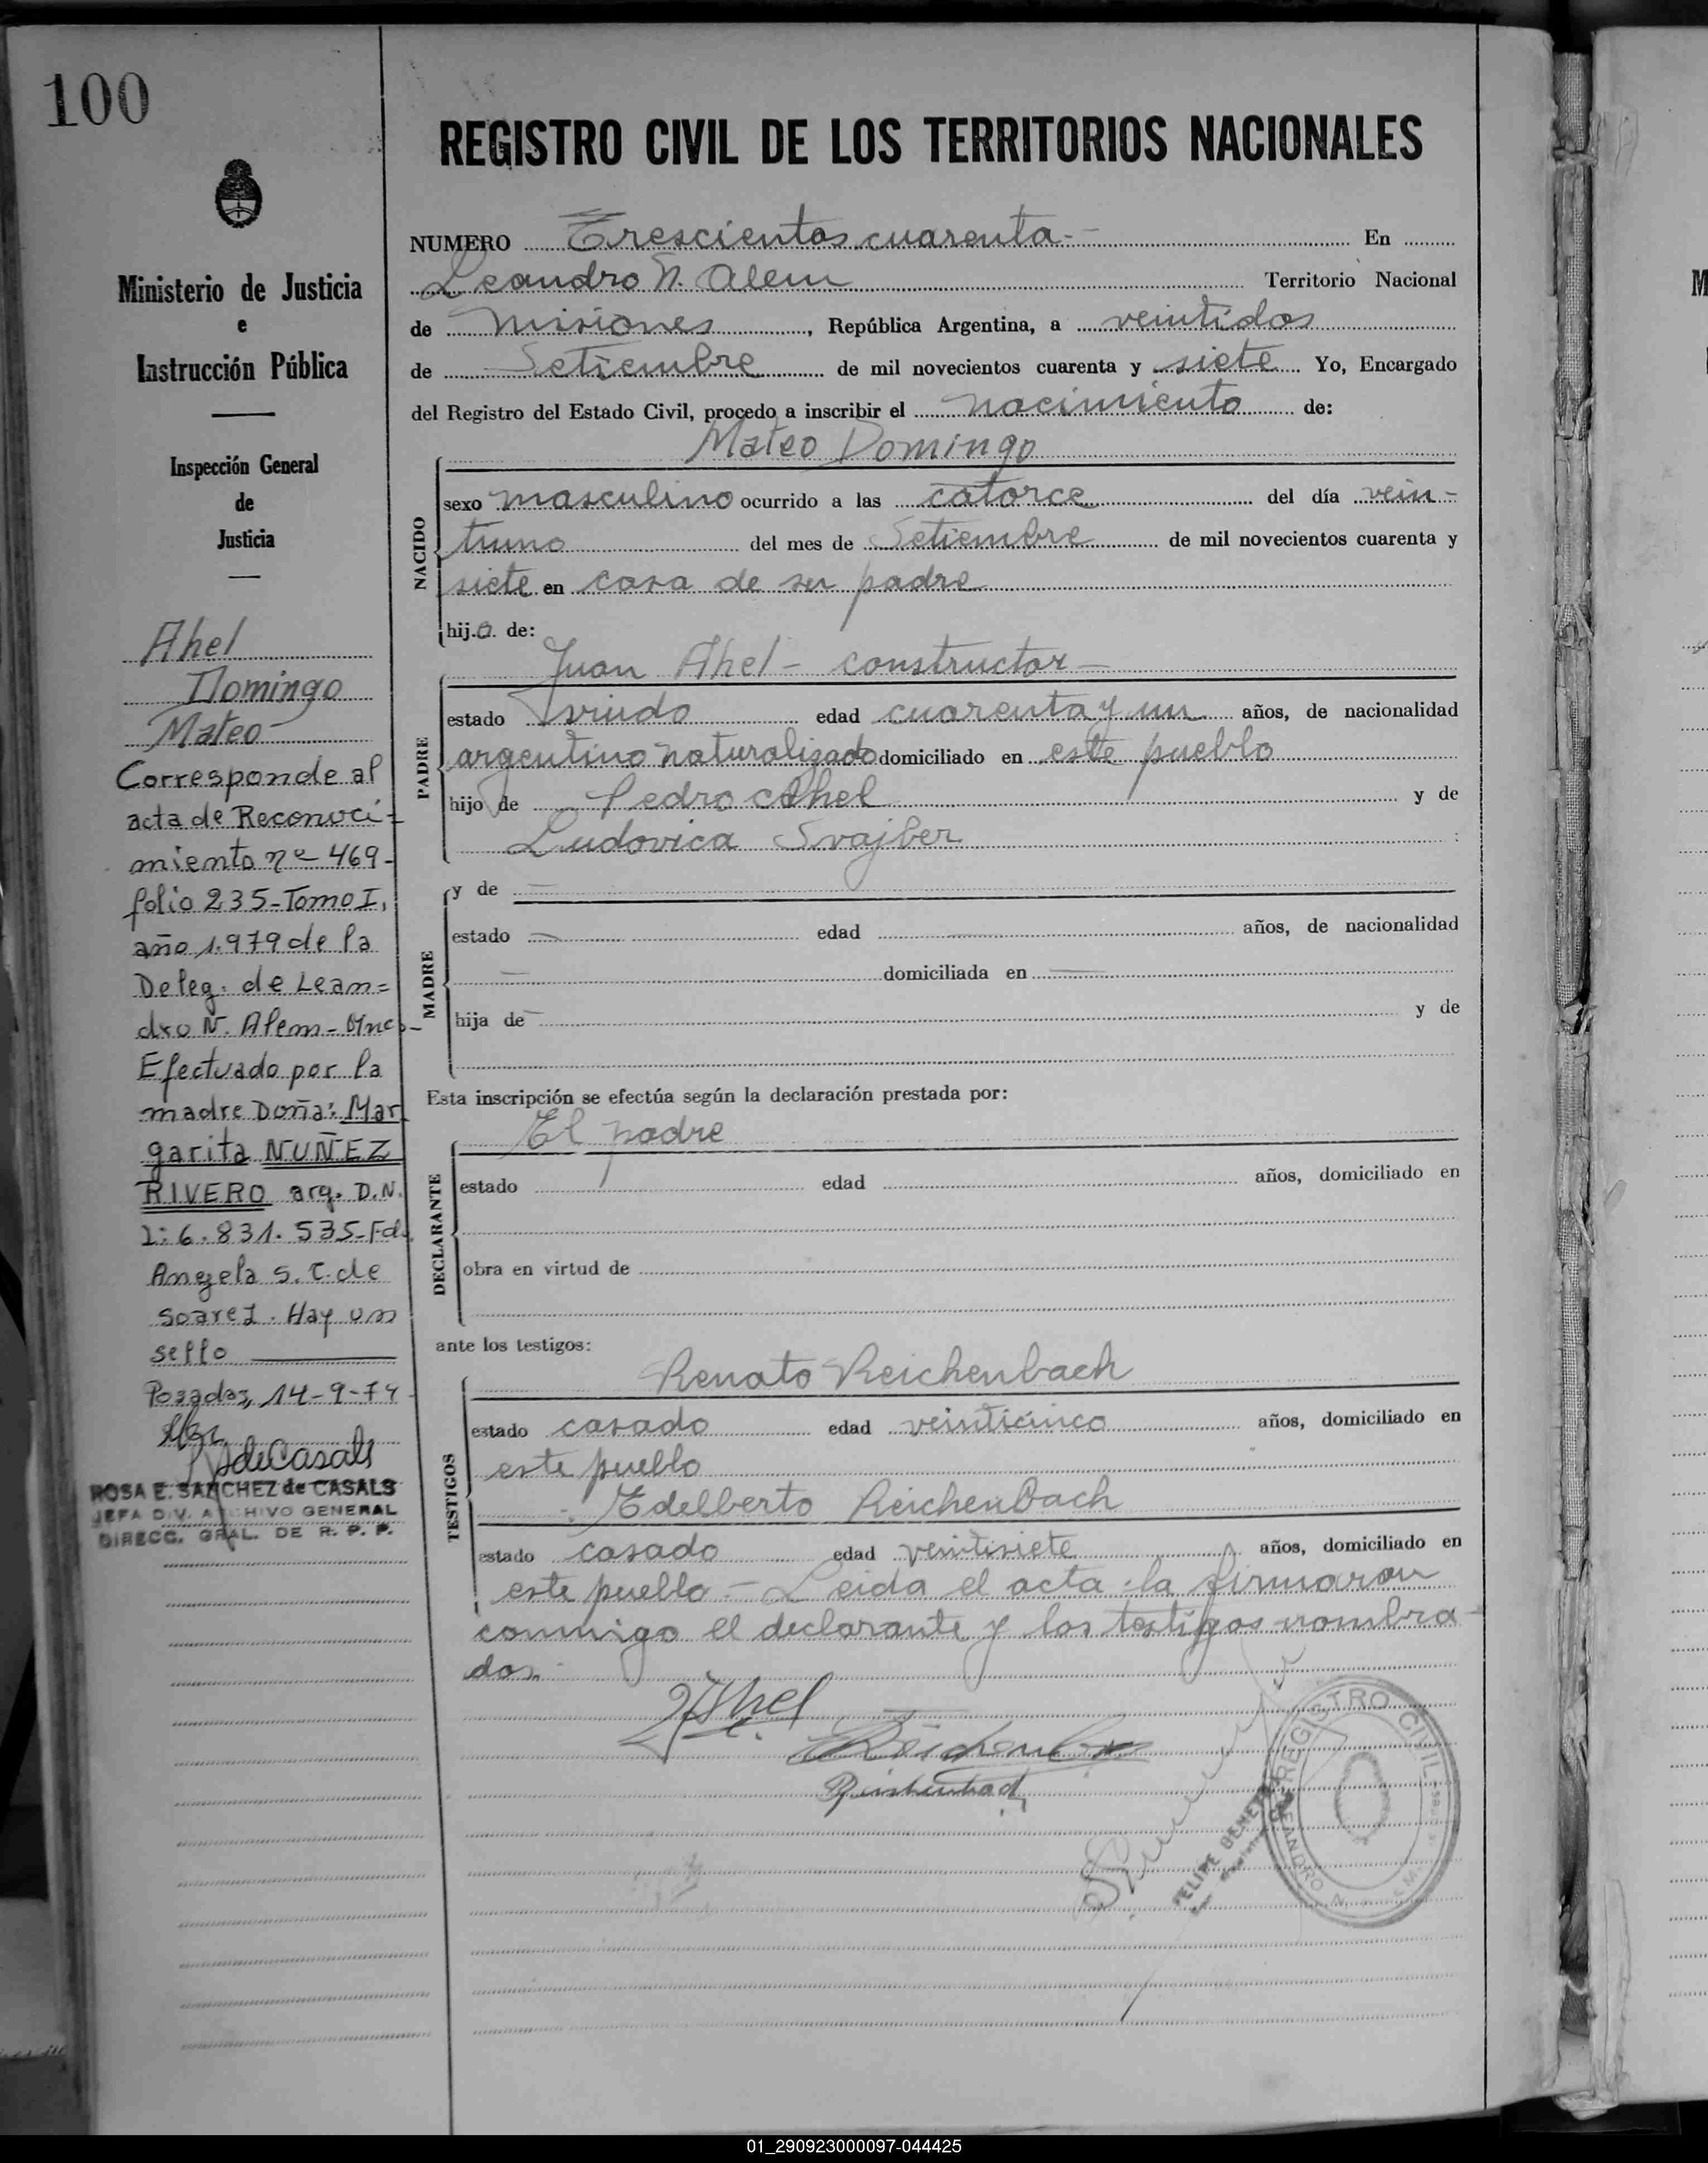 100
REGISTRO CIVIL DE LOS TERRITORIOS NACIONALES
Ministerio de Justicia
e
Instrucción Pública
Inspección General
de
Justicia
Ahel
Domingo
Mateo
Corresponde al
acta de Reconoci-
miento nº 469-
folio 235-Tomo I,
año 1.979 de la
Deleg. de Lean=
dro N. Alem-Mnes-
Efectuado por la
madre Doña: Mar
garita NUÑEZ
RIVERO arg. D.N.
I: 6.831.535-Fdo.
Angela S. C. de
Soarez. Hay un
sello
Posadas, 14-9-79
deCasals
ROSA E. SANCHEZ de CASALS
JEFA DIV. ARCHIVO GENERAL
DIRECC. GRAL. DE R. P. P.
NUMERO Trescientos cuarenta.- En
Leandro N. Alem Territorio Nacional
de Misiones, República Argentina, a veintidos
de Setiembre de mil novecientos cuarenta y siete Yo, Encargado
del Registro del Estado Civil, procedo a inscribir el nacimiento de:
Mateo Domingo
NACIDO
sexo masculino ocurrido a las catorce del día vein-
tiuno del mes de Setiembre de mil novecientos cuarenta y
siete en casa de su padre
hijo de:
Juan Ahel - constructor -
PADRE
estado viudo edad cuarenta y un años, de nacionalidad
argentino naturalizado domiciliado en este pueblo
hijo de Pedro Ahel y de
Ludovica Svajber
MADRE
y de —
estado — edad — años, de nacionalidad
— domiciliada en —
hija de — y de
Esta inscripción se efectúa según la declaración prestada por:
El padre
DECLARANTE
estado edad años, domiciliado en
obra en virtud de
ante los testigos:
Renato Reichenbach
TESTIGOS
estado casado edad veinticinco años, domiciliado en
este pueblo
Edelberto Reichenbach
estado casado edad veintisiete años, domiciliado en
este pueblo - Leida el acta la firmaron
conmigo el declarante y los testigos nombra-
dos.
JAhel
Reichenbach
Reichenbach
FELIPE BENETE
REGISTRO CIVIL
LEANDRO N.
01_290923000097-044425